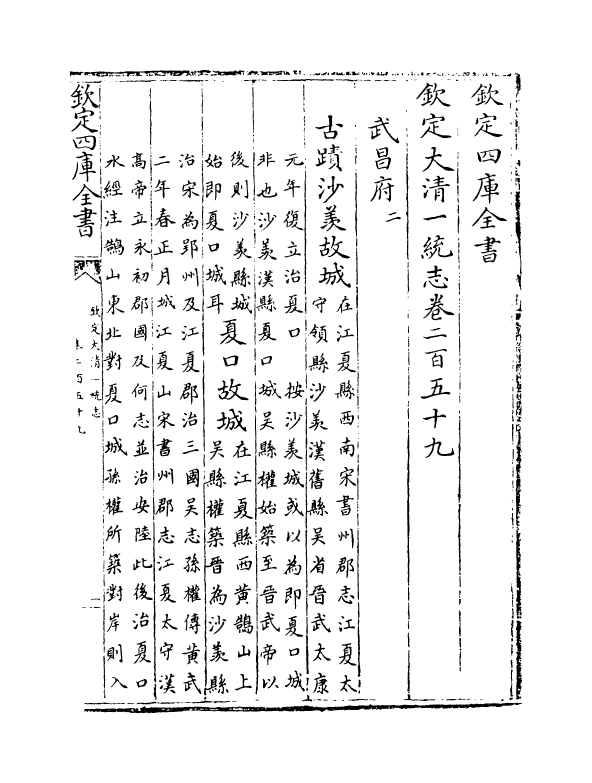 欽定四庫全書
欽定大清一統志卷二百五十九
武昌府二
古蹟沙羨故城在江夏縣西南宋書州郡志江夏太
守領縣沙羨漢舊縣吳省晉武太康
元年復立治夏口 按沙羨城或以為即夏口城
非也沙羨漢縣夏口城吳縣權始築至晉武帝以
後則沙羨縣城
始即夏口城耳
夏口故城在江夏縣西黃鵠山上
吳縣權築晉為沙羨縣
治宋為郢州及江夏郡治三國吳志孫權傳黃武
二年春正月城江夏山宋書州郡志江夏太守漢
高帝立永初郡國及何志並治安陸此後治夏口
水經注鵠山東北對夏口城孫權所築對岸則入
欽定四庫全書
欽定大清一統志
卷二百五十九
一